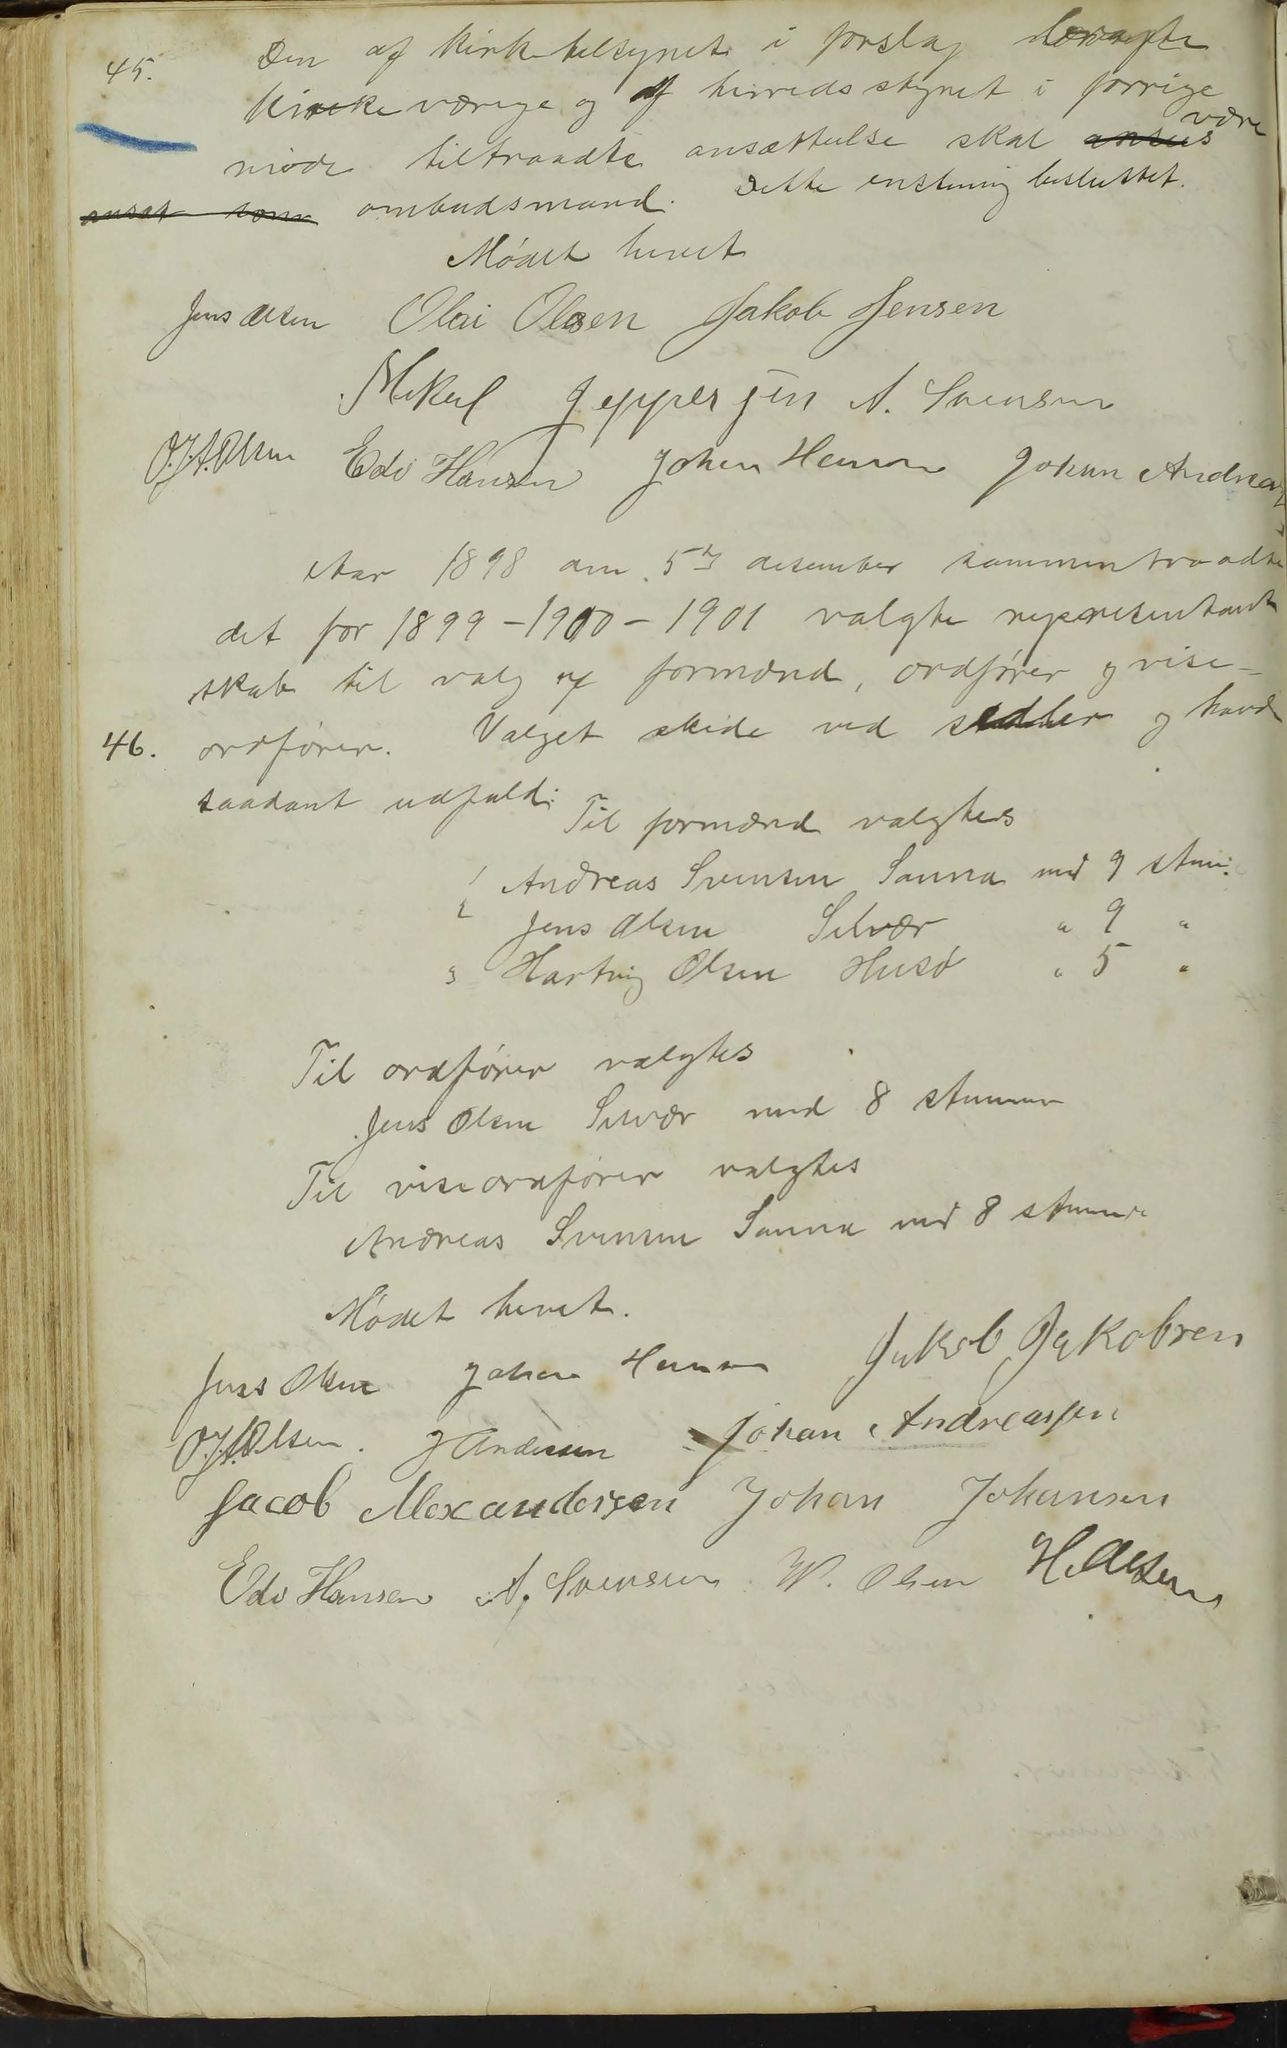 45. Den af kirketilsynet i forslag
kirkeværge og af herredsstyret i forrige
møde tiltraadte ansættelse skal ansees være
ansat som ombudsmand. Dette enstemig besluttet.
Mødet hevet
Jens Olsen Olai Olsen Jakob Jensen
Mikal Jeppersen A. Svensen
O.J.A.Olsen Edv Hansen Johan Hanson Johan Andreas
Aar 1898 den 5te desember sammentraadte
det for 1899-1900-1901 valgte representant
skab til valg af formænd, ordfører og vise-
46. ordfører. Valget skede ved sedler og havde
saadant udfald:
Til formænd valgtes
1 Andreas Svensen Sanna med 9 stem:
2 Jens Olsen Selvær " 9 "
3 Hartvig Olsen Husø " 5 "
Til ordfører valgtes
Jens Olsen Selvær med 8 stemmer
Til viseordfører valgtes
Andreas Svensen Sanna med 8 stemmer
Mødet hevet.
Jens Olsen Johan Hanson Jakob Jakobsen
O.J.A.Olsen. J Andersen Johan Andreassen
Jacob Alexandersen Johan Johansen
Edv Hansen A. Svensen W. Olsen H. Olsen